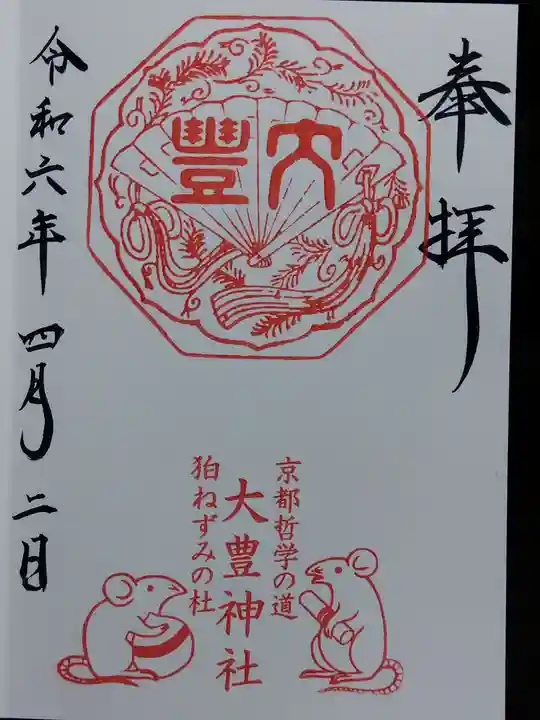 奉拝
大豐
京都哲学の道
大豊神社
狛ねずみの杜
令和六年四月二日